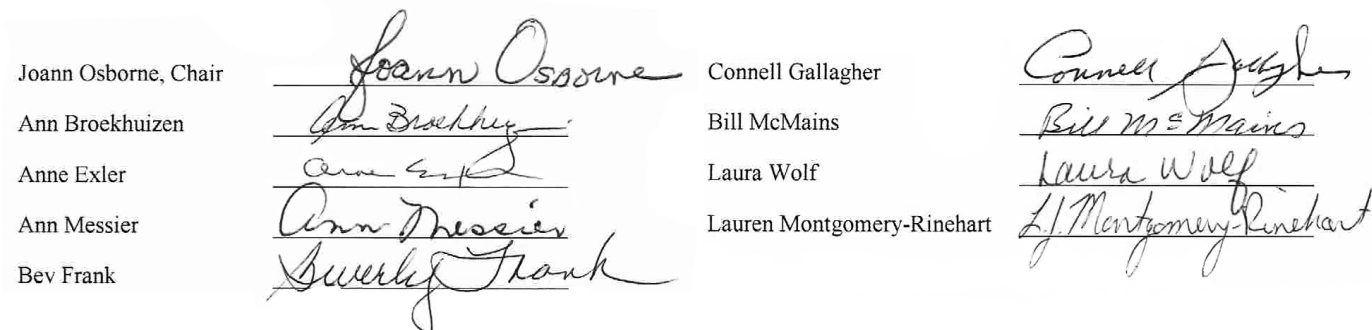 Joann Osborne, Chair Joann Osborne
Ann Broekhuizen Ann Broekhuizen
Anne Exler Anne Exler
Ann Messier Ann Messier
Bev Frank Beverly Frank
Connell Gallagher Connell Gallagher
Bill McMains Bill McMains
Laura Wolf Laura Wolf
Lauren Montgomery-Rinehart L.J. Montgomery-Rinehart